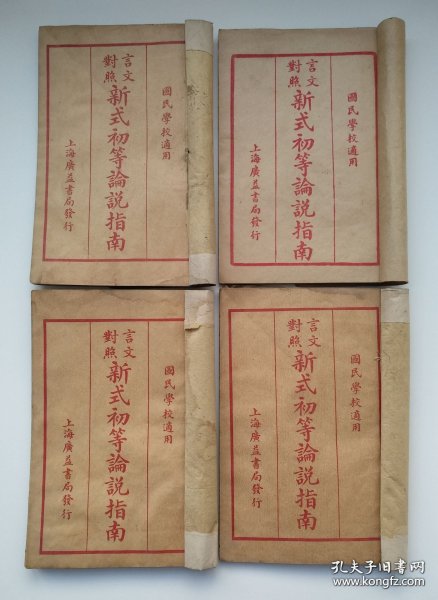 國民學校適用
言文
對照
新式初等論説指南
上海廣益書局發行
國民學校適用
言文
對照
新式初等論説指南
上海廣益書局發行
國民學校適用
言文
對照
新式初等論説指南
上海廣益書局發行
國民學校適用
言文
對照
新式初等論説指南
上海廣益書局發行
孔夫子旧书网
www.kongfz.com